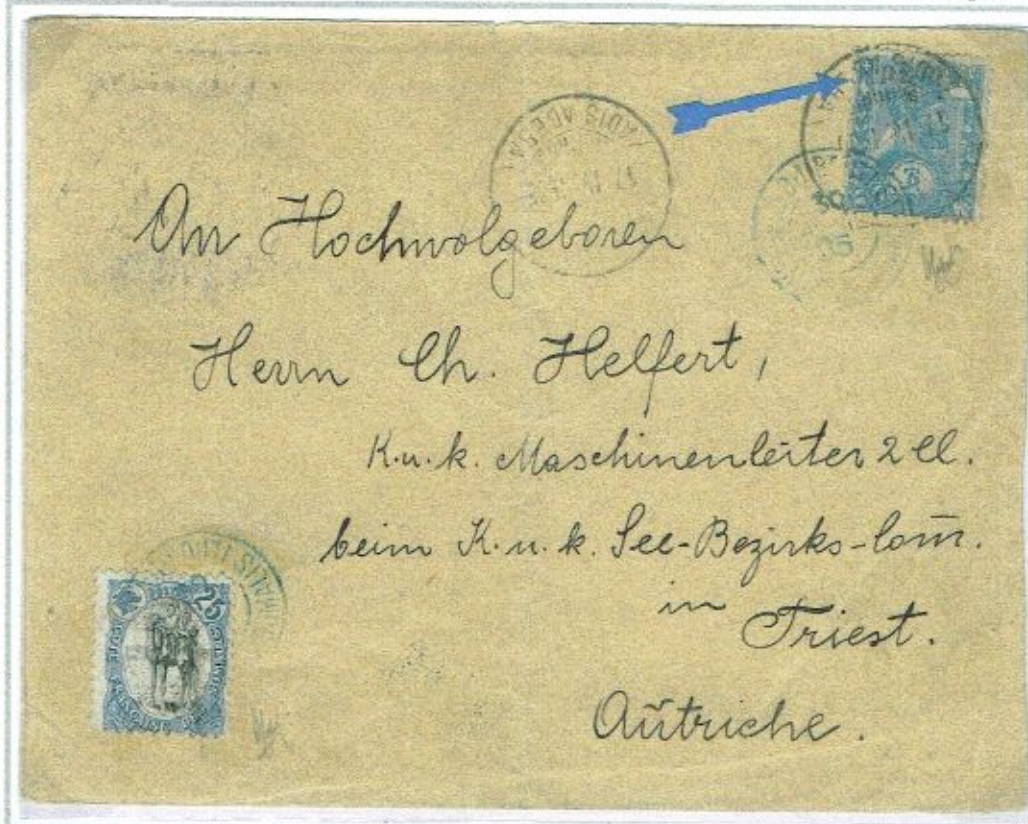 ADIS ABEBA
17
05
An Hochwolgeboren
Herrn Ch. Helfert,
K.u.k. Maschinenleiter 2 Cl.
beim K.u.k. See-Bezirks-Com̅.
in
Triest.
Aútriche.
25